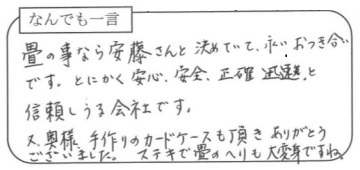 なんでも一言
畳の事なら安藤さんと決めていて、永いおつき合い
です。とにかく安心、安全、正確 迅速、と
信頼しうる会社です。
又、奥様、手作りのカードケースも頂き ありがとう
ございました。 ステキで畳のへりも大変身ですね